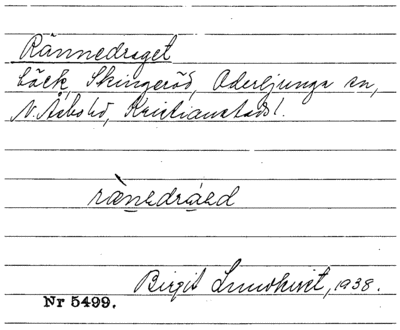 Rännedraget
bäck, Skingeröd, Oderljunga sn,
N. Åsbo hd, Kristianstads l.
rænədraəd
Birgit Lundkvist, 1938.
Nr 5499.